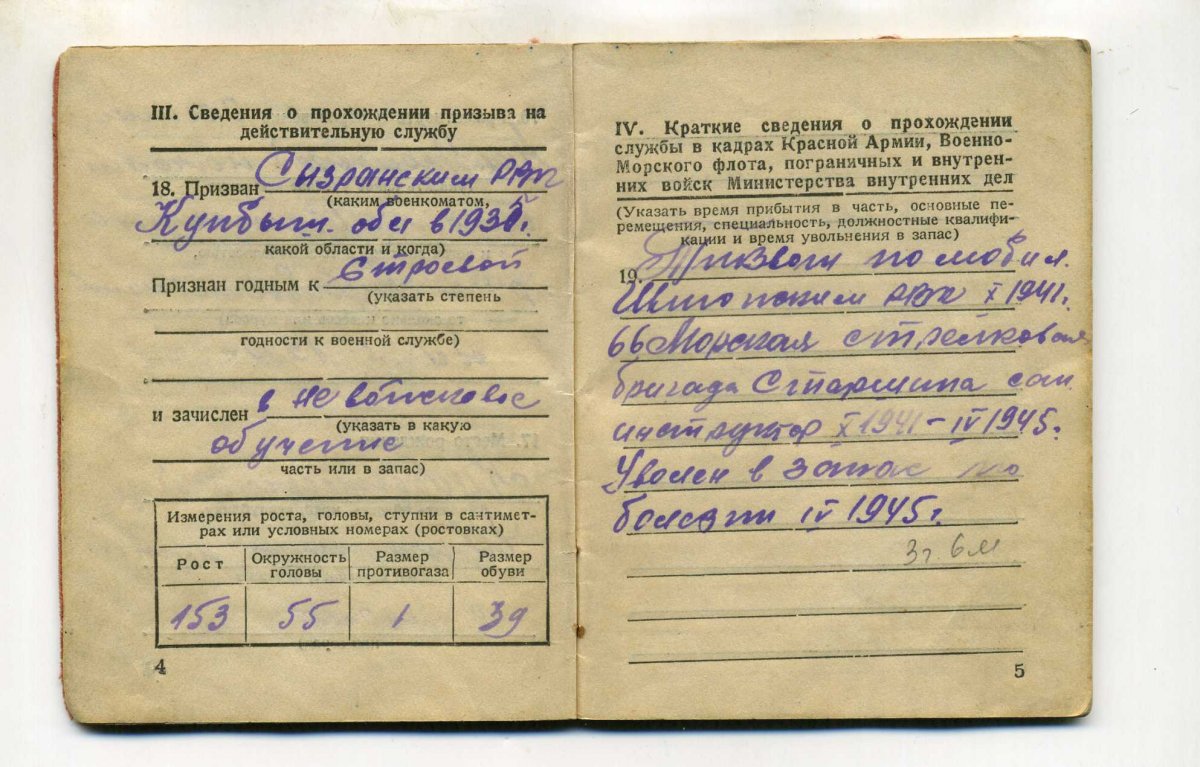 III. Сведения о прохождении призыва на
действительную службу
18. Призван Сызранским РВК
(каким военкоматом,
обл в 193 г.
какой области и когда)
Признан годным к строевой
(указать степень
годности к военной службе)
и зачислен в невойсковое
(указать в какую
обучение
часть или в запас)
Измерения роста, головы, ступни в сантимет-
рах или условных номерах (ростовках)
Рост Окружность головы Размер противогаза Размер обуви
153 55 1 39
4
IV. Краткие сведения о прохождении
службы в кадрах Красной Армии, Военно-
Морского флота, пограничных и внутрен-
них войск Министерства внутренних дел
(Указать время прибытия в часть, основные пе-
ремещения, специальность, должностные квалифи-
кации и время увольнения в запас)
19. Призван по мобил.
РВК X 1941.
66 Морская стрелковая
бригада Старшина сан.
инструктор X 1941 - IV 1945.
Уволен в запас по
болезни IV 1945г.
3г. 6м
5